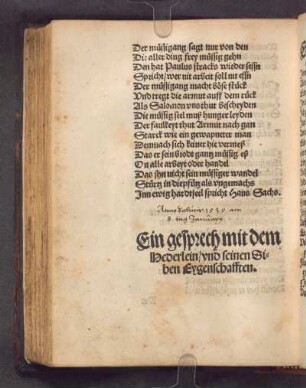 Der müssigang sagt nur von den
Die aller ding frey müssig gehn
Den hat Paulus stracks wieder
Spricht/ wer nit arbeit soll nit essn
Der müssigang macht böse stück
Vnd tregt die armut auff dem rück
Als Salomon vns thut bescheyden
Die müssig seel muss hunger leyden
Der faulkeyt thut Armut nach gan
Starck wie ein gewapneter man
Demnach sich keiner hie vermess
Das er sein brodt gang müssig ess
On alle arbeyt oder handel
Das jhn nicht sein müssiger wandel
Stürtz in vngemachs
Inn ewig hartzel spricht Hans Sachs.
Anno Salutis 1539 am
8 tag Januarij
Ein gesprech mit dem
Nederlein/ vnd seinen Si-
ben Eygenschafften.